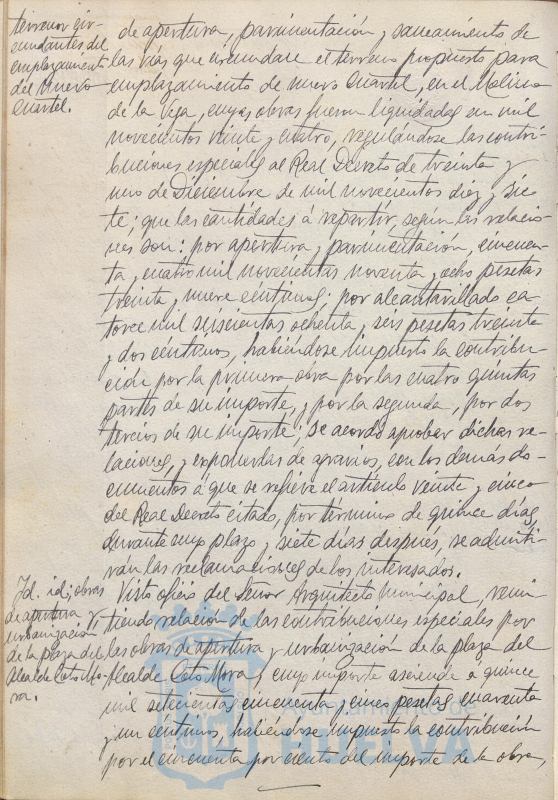 terrenos cir-
cundantes del
emplazamiento
del nuevo
cuartel.
de apertura, pavimentación y saneamiento de
las vías que circundan el terreno propuesto para
emplazamiento de nuevo Cuartel, en el Molino
de la Vega, cuyas obras fueron liquidadas en mil
novecientos veinte y cuatro, regulándose las contri-
buciones especiales al Real Decreto de treinta y
uno de Diciembre de mil novecientos diez y sie-
te; que las cantidades á repartir, según las relacio-
nes son: por apertura y pavimentación, cincuen-
ta y cuatro mil novecientas noventa y ocho pesetas
treinta y nueve céntimos; por alcantarillado ca-
torce mil seiscientas ochenta y seis pesetas treinta
y dos céntimos, habiéndose impuesto la contribu-
ción por la primera obra por las cuatro quintas
partes de su importe, y por la segunda, por dos
tercios de su importe; se acordó aprobar dichas re-
laciones, y exponerlas de agravios, con los demás do-
cumentos á que se refiere el artículo veinte y cinco
del Real Decreto citado, por término de quince días,
durante cuyo plazo, y siete días después, se admiti-
rán las reclamaciones de los interesados.
Id. id; obras
de apertura y
urbanización
de la plaza del
Alcalde Coto Mo-
ra.
Visto oficio del Señor Arquitecto municipal, remi-
tiendo relación de las contribuciones especiales por
las obras de apertura y urbanización de la plaza del
Alcalde Coto Mora, y cuyo importe asciende a quince
mil setecientas cincuenta y una pesetas cuarenta
y un céntimos, habiéndose impuesto la contribución
por el cincuenta por ciento del importe de la obra,
Ayuntamiento de
HUELVA